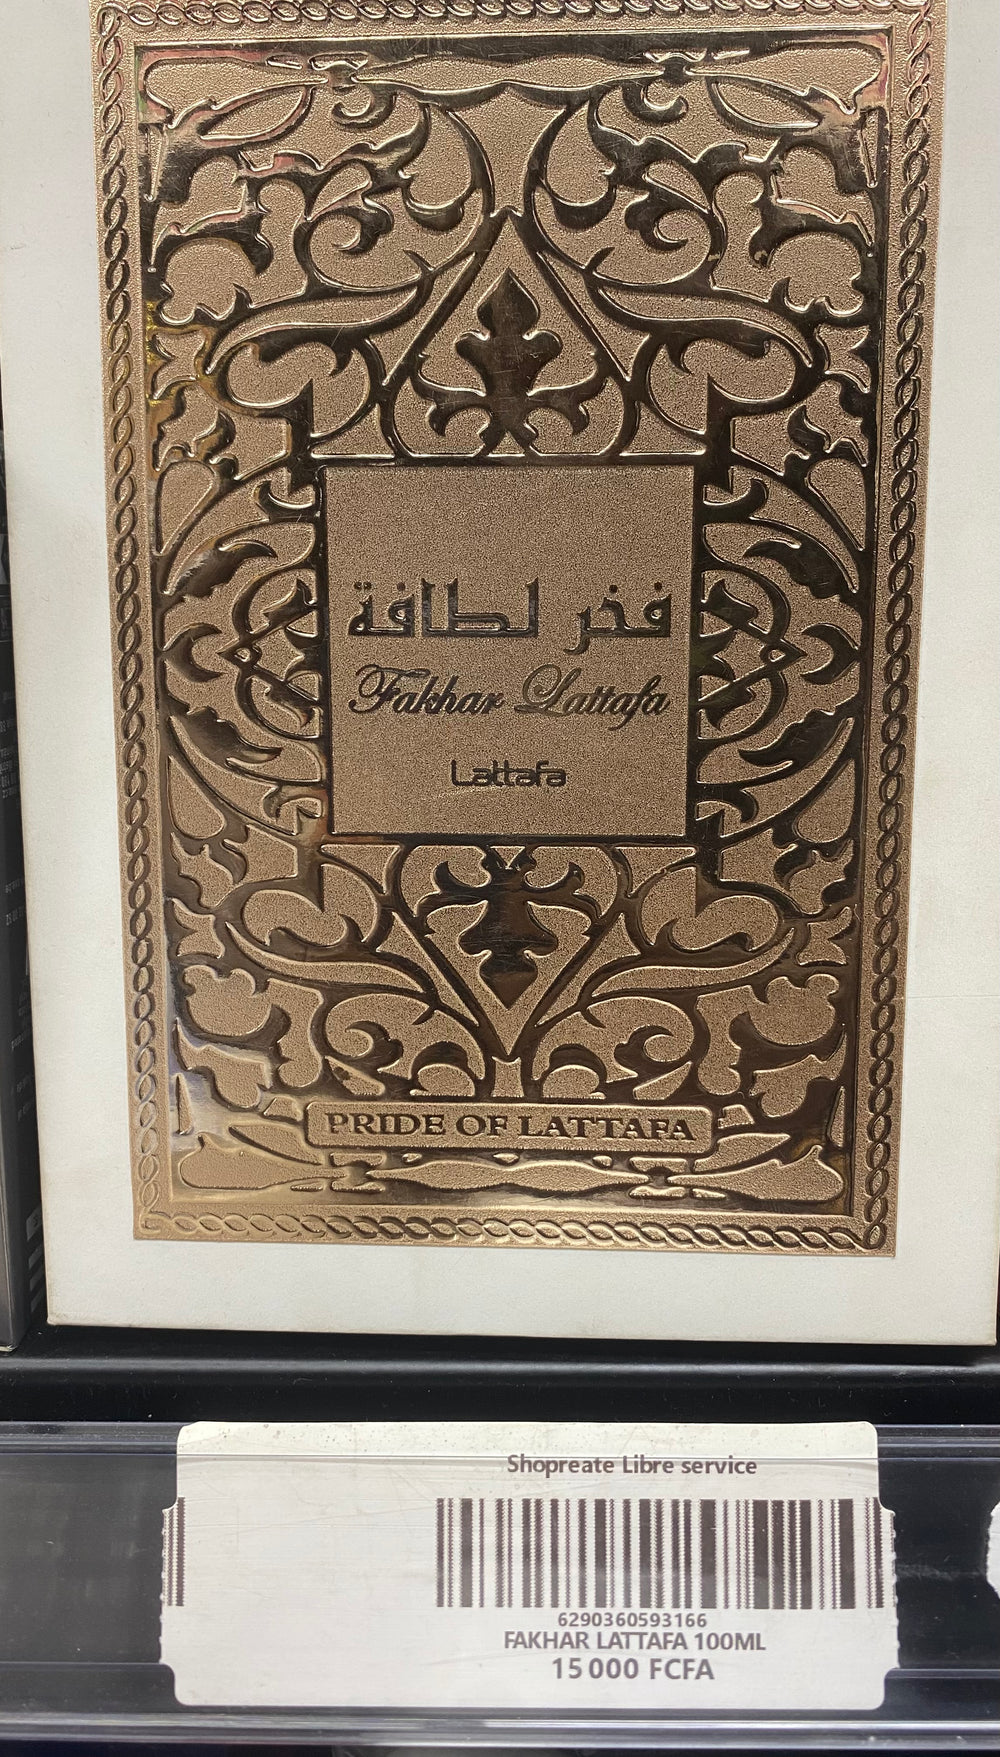 فخر لطافة
Fakhar Lattafa
Lattafa
PRIDE OF LATTAFA
Shopreate Libre service
6290360593166
FAKHAR LATTAFA 100ML
15 000 FCFA